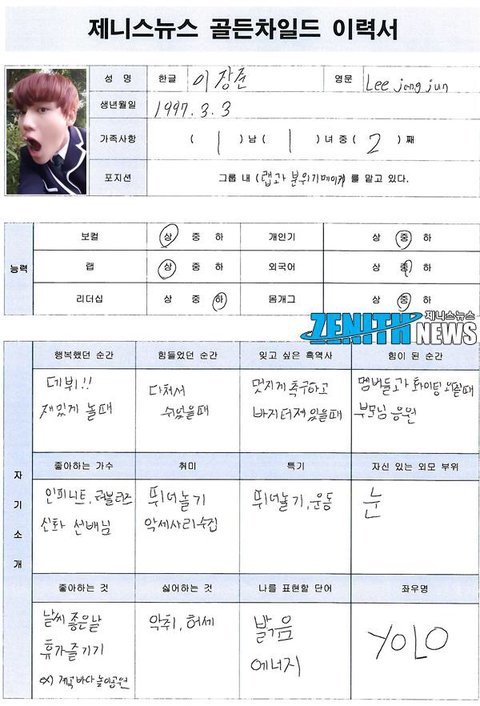 제니스뉴스 골든차일드 이력서
성 명 한글 이장준 영문 Lee jang jun
생년월일 1997. 3. 3
가족사항 ( 1 ) 남 ( 1 ) 녀 중 ( 2 ) 째
포지션 그룹 내 ( 랩과 분위기메이커 )를 맡고 있다.
능력 보컬 상 중 하 개인기 상 중 하
랩 상 중 하 외국어 상 중 하
리더십 상 중 하 몸개그 상 중 하
제니스뉴스
ZENITH NEWS
자기소개
행복했던 순간 힘들었던 순간 잊고 싶은 흑역사 힘이 된 순간
데뷔!! 다쳐서 멋지게 축구하고 멤버들과 화이팅 외칠때
재밌게 놀때 쉬었을때 바지터져 있을때 부모님 응원
좋아하는 가수 취미 특기 자신 있는 외모 부위
인피니트, 러블리즈 뛰어놀기 뛰어놀기, 운동 눈
신화 선배님 악세사리수집
좋아하는 것 싫어하는 것 나를 표현할 단어 좌우명
날씨 좋은날 악취, 허세 밝음 YOLO
휴가즐기기 에너지
ex) 계곡 바다 놀이공원